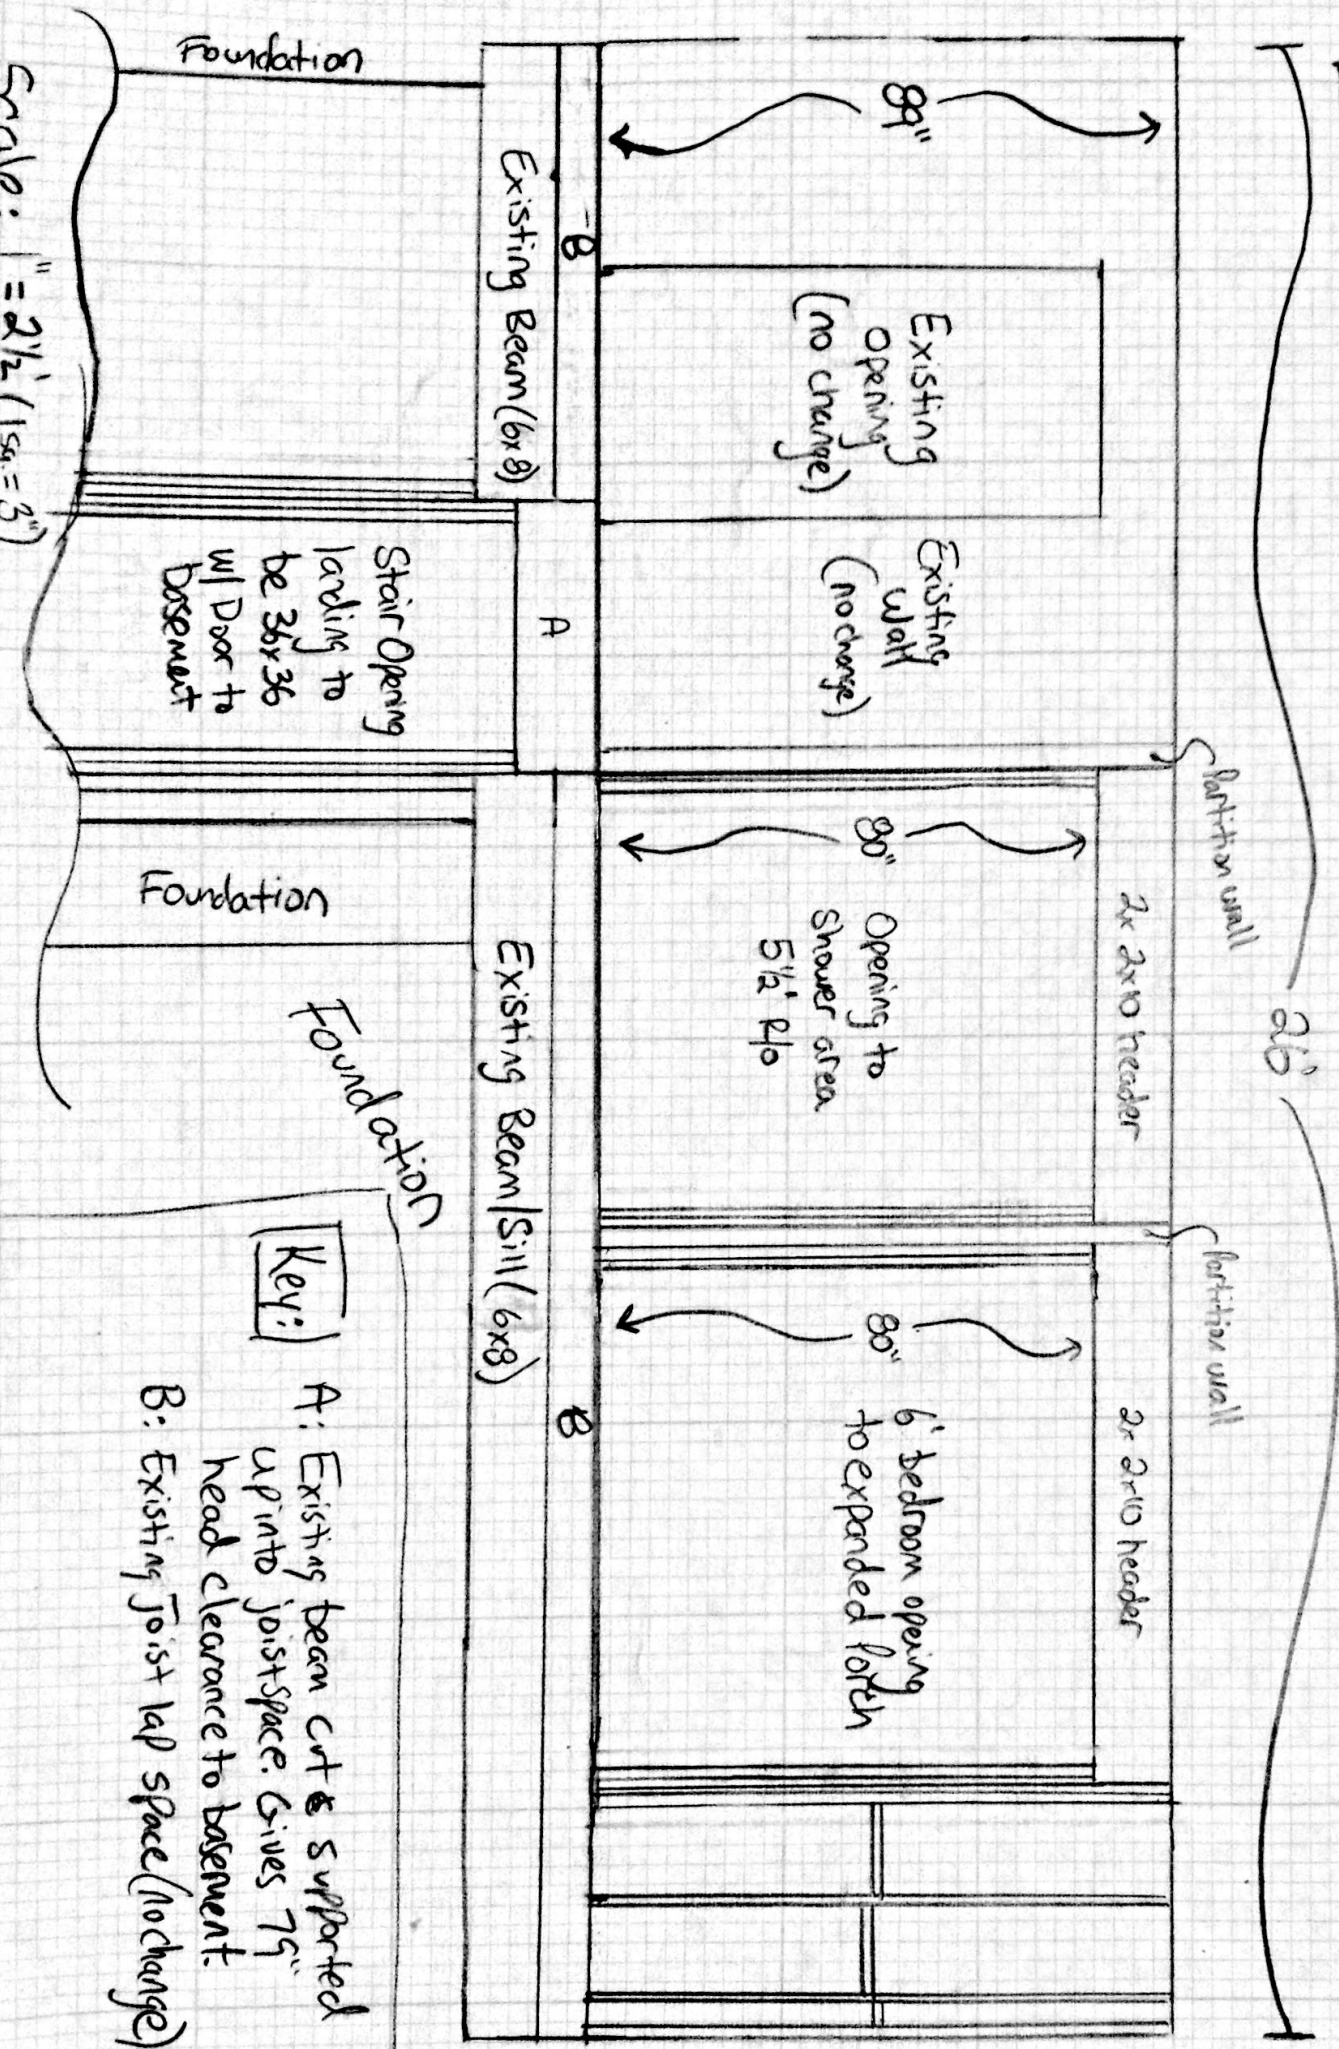 26'
Partition wall
Partition wall
2x 2x10 header
2x 2x10 header
89"
Existing
opening
(no change)
Existing
wall
(no change)
80"
Opening to
shower area
5½' R/o
80"
6' bedroom opening
to expanded Porch
B
A
B
Existing Beam (6x8)
Existing Beam/Sill (6x8)
Foundation
Stair Opening
landing to
be 36x36
w/ Door to
basement
Foundation
Foundation
Key:
A: Existing beam cut & supported
up into joist space. Gives 79"
head clearance to basement.
B: Existing joist lap space (no change)
Scale: 1" = 2½' (1sq. = 3")